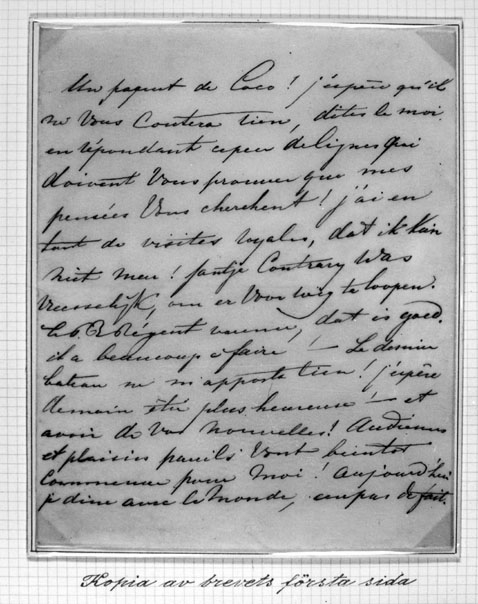 Un paquet de Coco! j'espère qu'il
ne Vous Coutera rien, dites le moi
en répondant à peu de lignes qui
doivent Vous prouver que mes
pensées Vous cherchent! j'ai eu
tant de visites royales, dat ik kan
niet meer! Contrary was
Vreesselijk, om er Voor weg te loopen.
Régent dat is goed.
il a beaucoup à faire! — Le dernier
bateau ne m'apporta rien! j'espère
demain être plus heureuse! — et
avoir de Vos nouvelles! Audiences
et plaisirs pareils Vont bientot
Commencer pour Moi! Aujourd'hui
je dine avec le Monde,
Kopia av brevets första sida